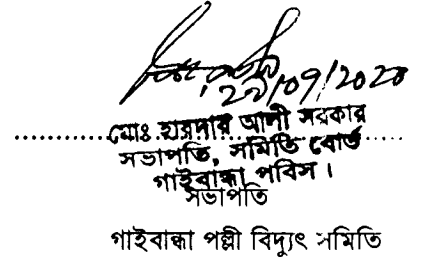 ২৯/০৭/২০২০
মোঃ হায়দার আলী সরকার
সভাপতি, সমিতি বোর্ড
গাইবান্ধা পবিস।
সভাপতি
গাইবান্ধা পল্লী বিদ্যুৎ সমিতি